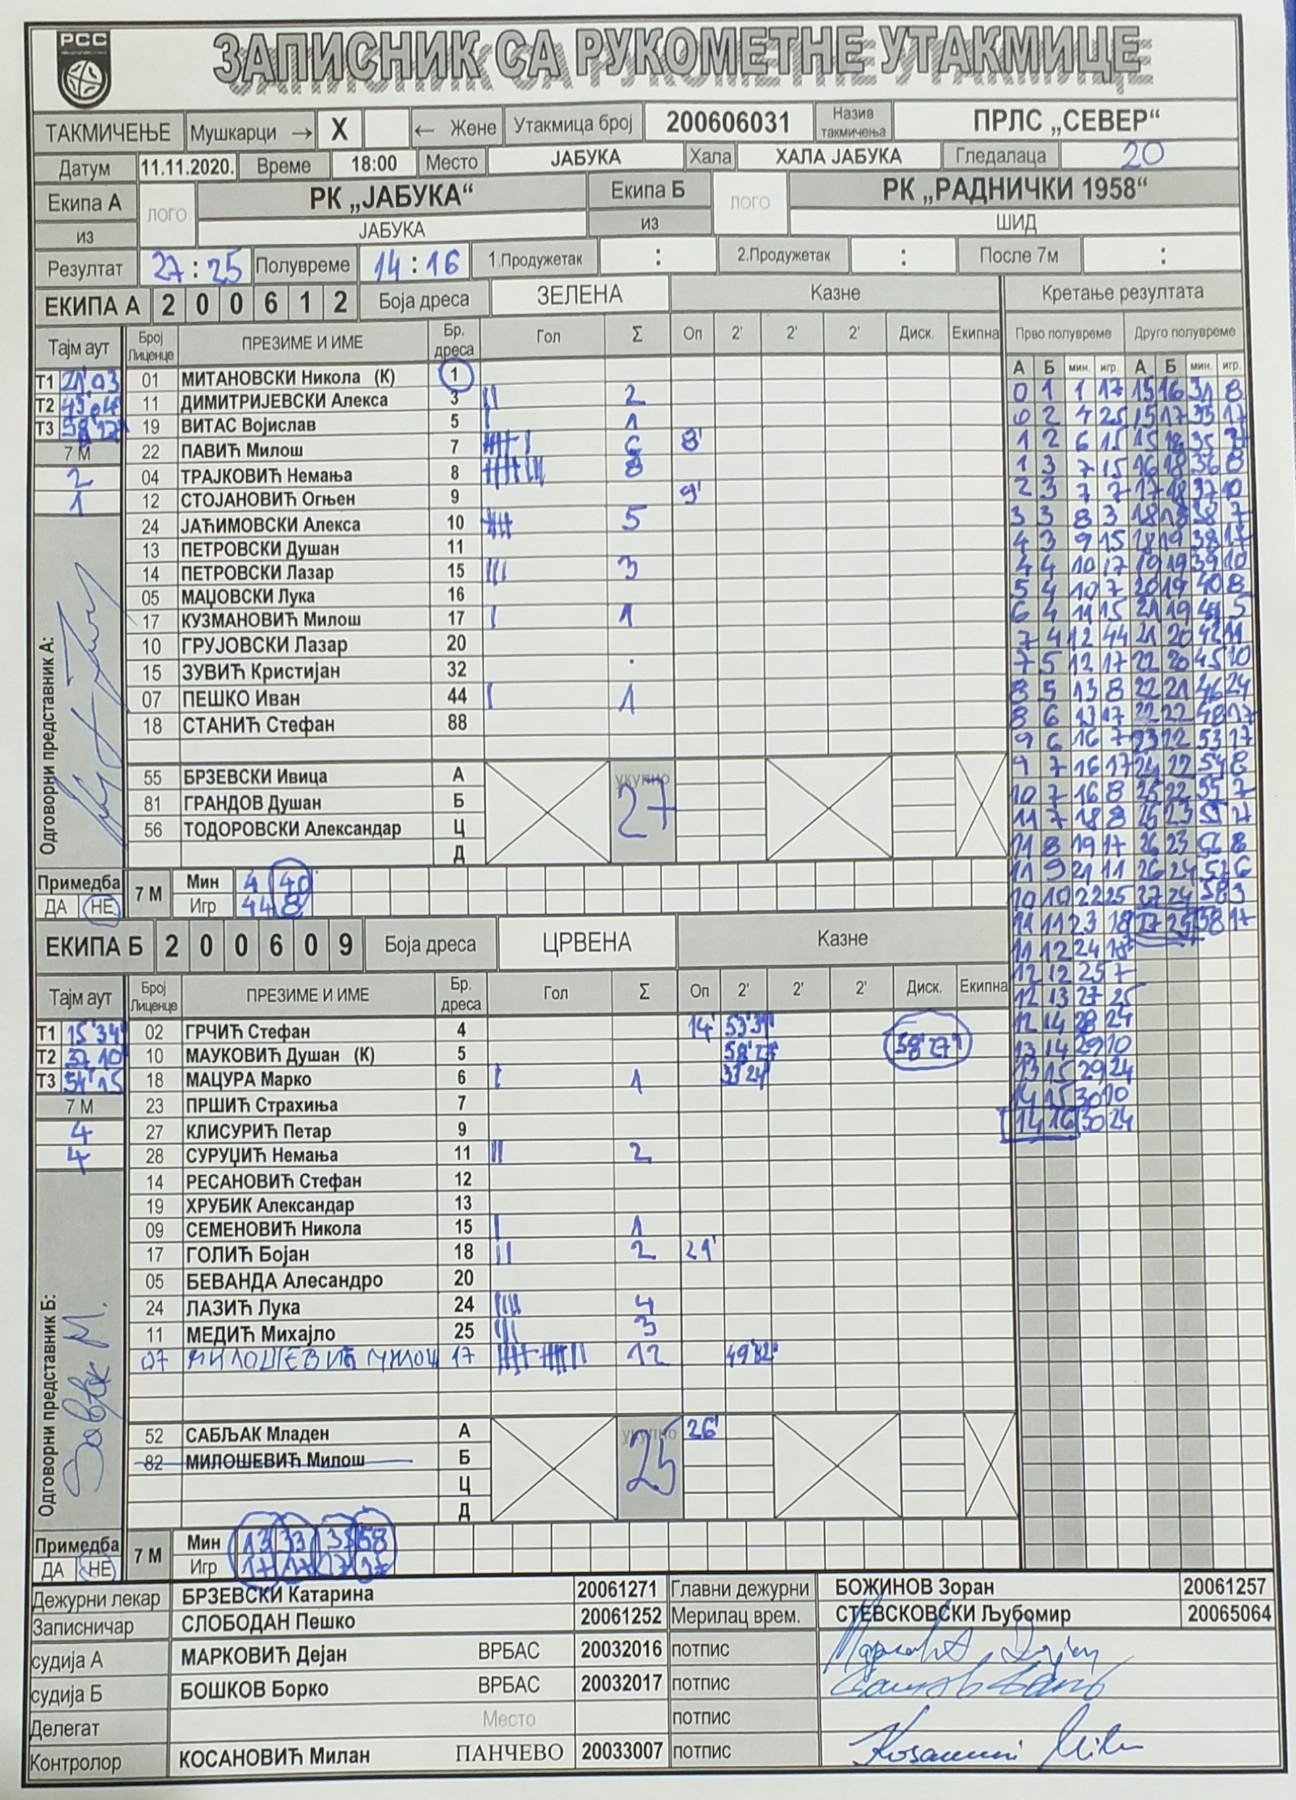 РСС
ЗАПИСНИК СА РУКОМЕТНЕ УТАКМИЦЕ
ТАКМИЧЕЊЕ Мушкарци → X ← Жене Утакмица број 200606031 Назив такмичења ПРЛС „СЕВЕР“
Датум 11.11.2020. Време 18:00 Место ЈАБУКА Хала ХАЛА ЈАБУКА Гледалаца 20
Екипа А ЛОГО РК „ЈАБУКА“ Екипа Б ЛОГО РК „РАДНИЧКИ 1958“
из ЈАБУКА из ШИД
Резултат 27:25 Полувреме 14:16 1.Продужетак : 2.Продужетак : После 7м :
ЕКИПА А 2 0 0 6 1 2 Боја дреса ЗЕЛЕНА Казне Кретање резултата
Тајм аут Број Лиценце ПРЕЗИМЕ И ИМЕ Бр. дреса Гол Σ Оп 2' 2' 2' Диск. Екипна Прво полувреме Друго полувреме
А Б мин. игр. А Б мин. игр.
Т1 21'03 01 МИТАНОВСКИ Никола (К) 1
Т2 11 ДИМИТРИЈЕВСКИ Алекса 3 2
Т3 19 ВИТАС Војислав 5 1
7 М 22 ПАВИЋ Милош 7 6 8'
2 04 ТРАЈКОВИЋ Немања 8 8
1 12 СТОЈАНОВИЋ Огњен 9 9'
24 ЈАЋИМОВСКИ Алекса 10 5
13 ПЕТРОВСКИ Душан 11
14 ПЕТРОВСКИ Лазар 15 3
05 МАЏОВСКИ Лука 16
17 КУЗМАНОВИЋ Милош 17 1
10 ГРУЈОВСКИ Лазар 20
15 ЗУВИЋ Кристијан 32
07 ПЕШКО Иван 44 1
18 СТАНИЋ Стефан 88
Одговорни представник А:
55 БРЗЕВСКИ Ивица А укупно 27
81 ГРАНДОВ Душан Б
56 ТОДОРОВСКИ Александар Ц
Д
Примедба 7 М Мин 4 40
ДА НЕ Игр 44 8
0 1 1 17 15 16 31 8
0 2 4 25 15 17 33 17
1 2 6 15 15 18 35 17
1 3 7 15 16 18 36 8
2 3 7 7 17 18 37 10
3 3 8 3 18 18 38 7
4 3 9 15 18 19 38 17
4 4 10 17 19 19 39 10
5 4 10 7 20 19 40 8
6 4 11 15 21 19 41 5
7 4 12 44 21 20 42 11
7 5 12 17 22 20 45 10
8 5 13 8 22 21 46 24
8 6 13 17 22 22 48 17
9 6 16 7 23 22 53 17
9 7 16 17 24 22 54 8
10 7 16 8 25 22 55 7
11 7 18 8 26 23 55 17
11 8 19 17 26 23 56 8
11 9 21 11 26 24 57 6
10 10 22 25 27 24 58 3
11 11 23 18 27 25 58 17
11 12 24 18
12 12 25 7
12 13 27 25
12 14 28 24
13 14 29 10
13 15 29 24
14 15 30 10
14 16 30 24
ЕКИПА Б 2 0 0 6 0 9 Боја дреса ЦРВЕНА Казне
Тајм аут Број Лиценце ПРЕЗИМЕ И ИМЕ Бр. дреса Гол Σ Оп 2' 2' 2' Диск. Екипна
Т1 15'34 02 ГРЧИЋ Стефан 4 14' 53'31
Т2 37'10 10 МАУКОВИЋ Душан (К) 5 58'27 58'27"
Т3 54'15 18 МАЦУРА Марко 6 1
7 М 23 ПРШИЋ Страхиња 7
4 27 КЛИСУРИЋ Петар 9
4 28 СУРУЏИЋ Немања 11 2
14 РЕСАНОВИЋ Стефан 12
19 ХРУБИК Александар 13
09 СЕМЕНОВИЋ Никола 15 1
17 ГОЛИЋ Бојан 18 2 21'
05 БЕВАНДА Алесандро 20
24 ЛАЗИЋ Лука 24 4
11 МЕДИЋ Михајло 25 3
07 МИЛОШЕВИЋ МИЛОШ 17 12
Одговорни представник Б:
52 САБЉАК Младен А укупно 25 26'
82 МИЛОШЕВИЋ Милош Б
Ц
Д
Примедба 7 М Мин 13 33 35 58
ДА НЕ Игр 17 17 17 17
Дежурни лекар БРЗЕВСКИ Катарина 20061271 Главни дежурни БОЖИНОВ Зоран 20061257
Записничар СЛОБОДАН Пешко 20061252 Мерилац врем. СТЕВСКОВСКИ Љубомир 20065064
судија А МАРКОВИЋ Дејан ВРБАС 20032016 потпис
судија Б БОШКОВ Борко ВРБАС 20032017 потпис
Делегат Место потпис
Контролор КОСАНОВИЋ Милан ПАНЧЕВО 20033007 потпис